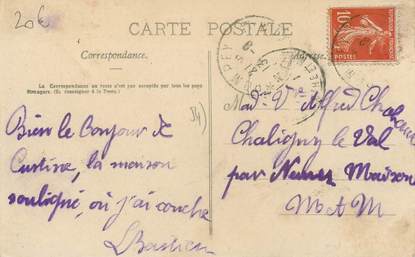 20€
CARTE POSTALE
Correspondance.
Adresse.
La Correspondance au verso n'est pas acceptée par tous les pays
Étrangers. (Se renseigner à la Poste.)
10
POSTES
54)
Bien le Bonjour de
Custine, la maison
souligné, où j'ai couché
LBastien
Mad. V. Alfred
Chaligny le Val
par Neuves Maison
M et M